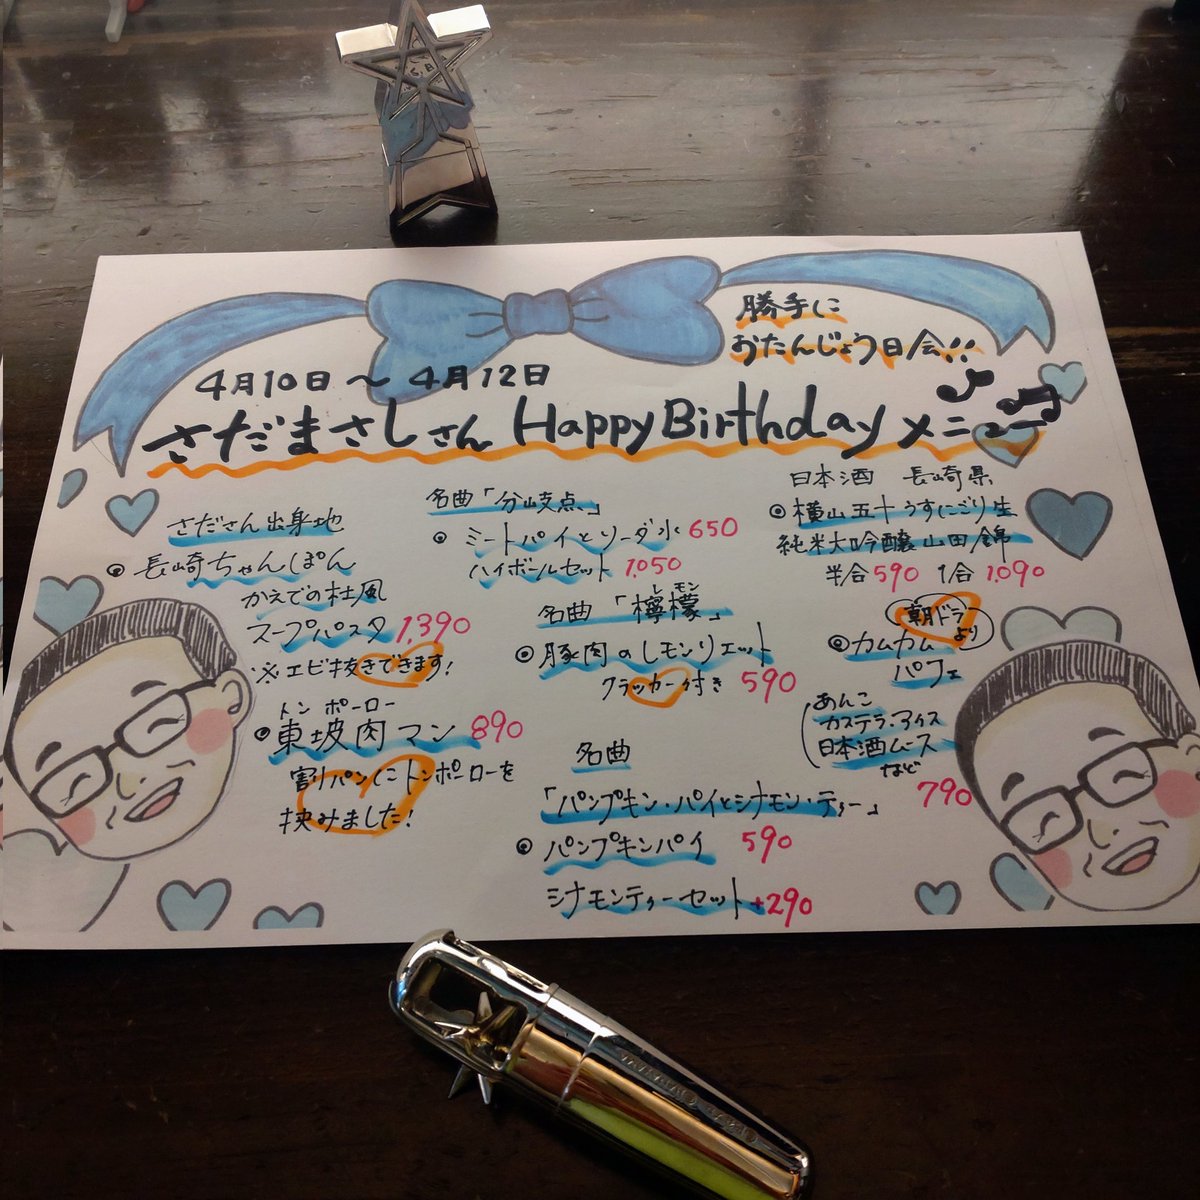 勝手に
おたんじょう日会!!
4月10日〜4月12日
さだまさしさん Happy Birthday メニュー
さださん出身地
長崎ちゃんぽん
かえでの杜風
スープパスタ 1,390
※エビ抜きできます!
トンポーロー
東坡肉マン 890
割りパンにトンポーローを
挟みました!
名曲「分岐点」
ミートパイとソーダ水 650
ハイボールセット 1,050
レモン
名曲「檸檬」
豚肉のレモンリエット
クラッカー付き 590
名曲
「パンプキン・パイとシナモン・ティー」
パンプキンパイ 590
シナモンティーセット +290
日本酒 長崎県
横山五十うすにごり生
純米大吟醸山田錦
半合590 1合1,090
朝ドラ
より
カムカム
パフェ
あんこ
カステラ・アイス
日本酒ムース
など
790